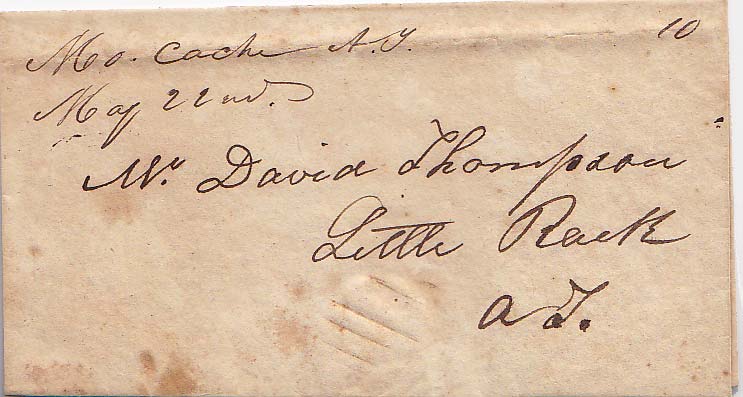 Mo. Cache A.T. 10
May 22nd.
Mr. David Thompson
Little Rock
A T.